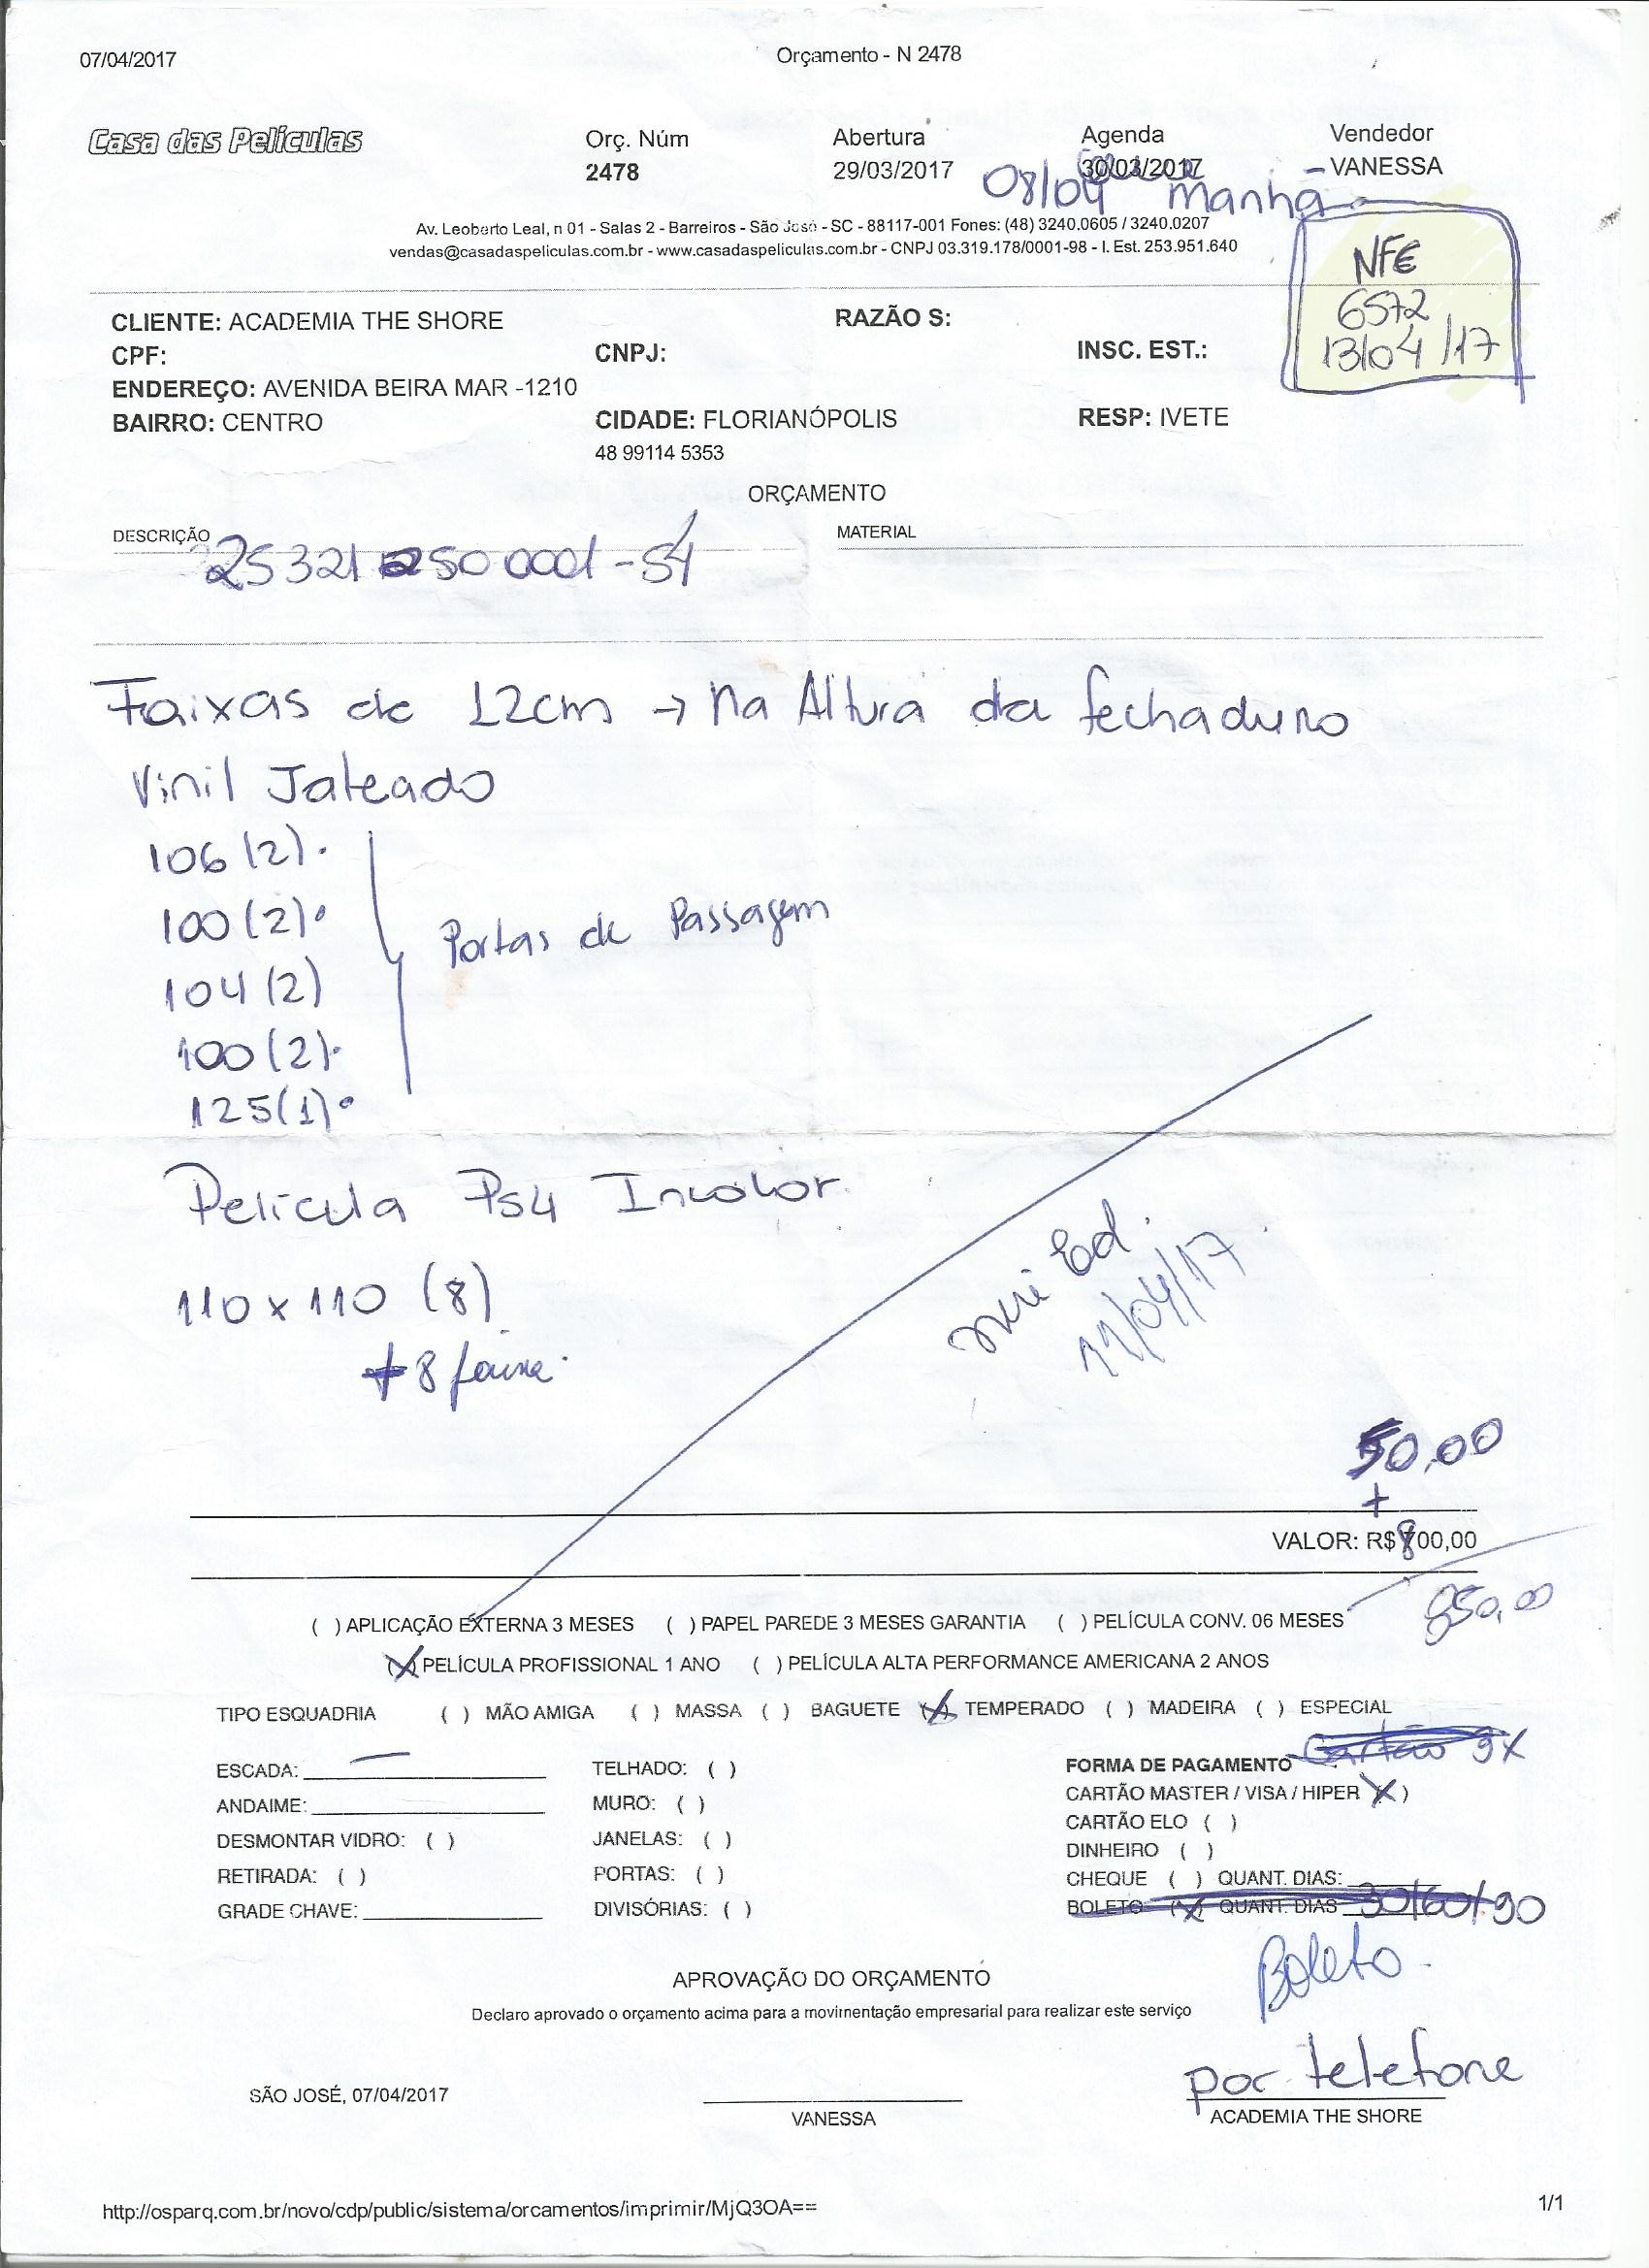 07/04/2017 Orçamento - N 2478
Casa das Películas
Orç. Núm Abertura Agenda Vendedor
2478 29/03/2017 30/03/2017 - VANESSA
08/04 manhã
Av. Leoberto Leal, n 01 - Salas 2 - Barreiros - São José - SC - 88117-001 Fones: (48) 3240.0605 / 3240.0207
vendas@casadaspeliculas.com.br - www.casadaspeliculas.com.br - CNPJ 03.319.178/0001-98 - I. Est. 253.951.640
NFE
6572
13/04/17
CLIENTE: ACADEMIA THE SHORE RAZÃO S:
CPF: CNPJ: INSC. EST.:
ENDEREÇO: AVENIDA BEIRA MAR -1210
BAIRRO: CENTRO CIDADE: FLORIANÓPOLIS RESP: IVETE
48 99114 5353
ORÇAMENTO
DESCRIÇÃO MATERIAL
25321250 0001-54
Faixas de 12cm → Na Altura da fechadura
Vinil Jateado
106 (2).
100 (2).
Portas de Passagem
104 (2)
100 (2).
125 (1).
Película Ps4 Incolor.
110 x 110 (8)
+ 8 faixa.
11/04/17
50,00
+
VALOR: R$ 800,00
850,00
( ) APLICAÇÃO EXTERNA 3 MESES ( ) PAPEL PAREDE 3 MESES GARANTIA ( ) PELÍCULA CONV. 06 MESES
(X) PELÍCULA PROFISSIONAL 1 ANO ( ) PELÍCULA ALTA PERFORMANCE AMERICANA 2 ANOS
TIPO ESQUADRIA ( ) MÃO AMIGA ( ) MASSA ( ) BAGUETE (X) TEMPERADO ( ) MADEIRA ( ) ESPECIAL
ESCADA: TELHADO: ( ) FORMA DE PAGAMENTO Cartão 3X
ANDAIME: MURO: ( ) CARTÃO MASTER / VISA / HIPER (X)
DESMONTAR VIDRO: ( ) JANELAS: ( ) CARTÃO ELO ( )
DINHEIRO ( )
RETIRADA: ( ) PORTAS: ( ) CHEQUE ( ) QUANT. DIAS:
GRADE CHAVE: DIVISÓRIAS: ( ) BOLETO (X) QUANT. DIAS 30/60/90
Boleto.
APROVAÇÃO DO ORÇAMENTO
Declaro aprovado o orçamento acima para a movimentação empresarial para realizar este serviço
por telefone
SÃO JOSÉ, 07/04/2017
VANESSA ACADEMIA THE SHORE
http://osparq.com.br/novo/cdp/public/sistema/orcamentos/imprimir/MjQ3OA== 1/1